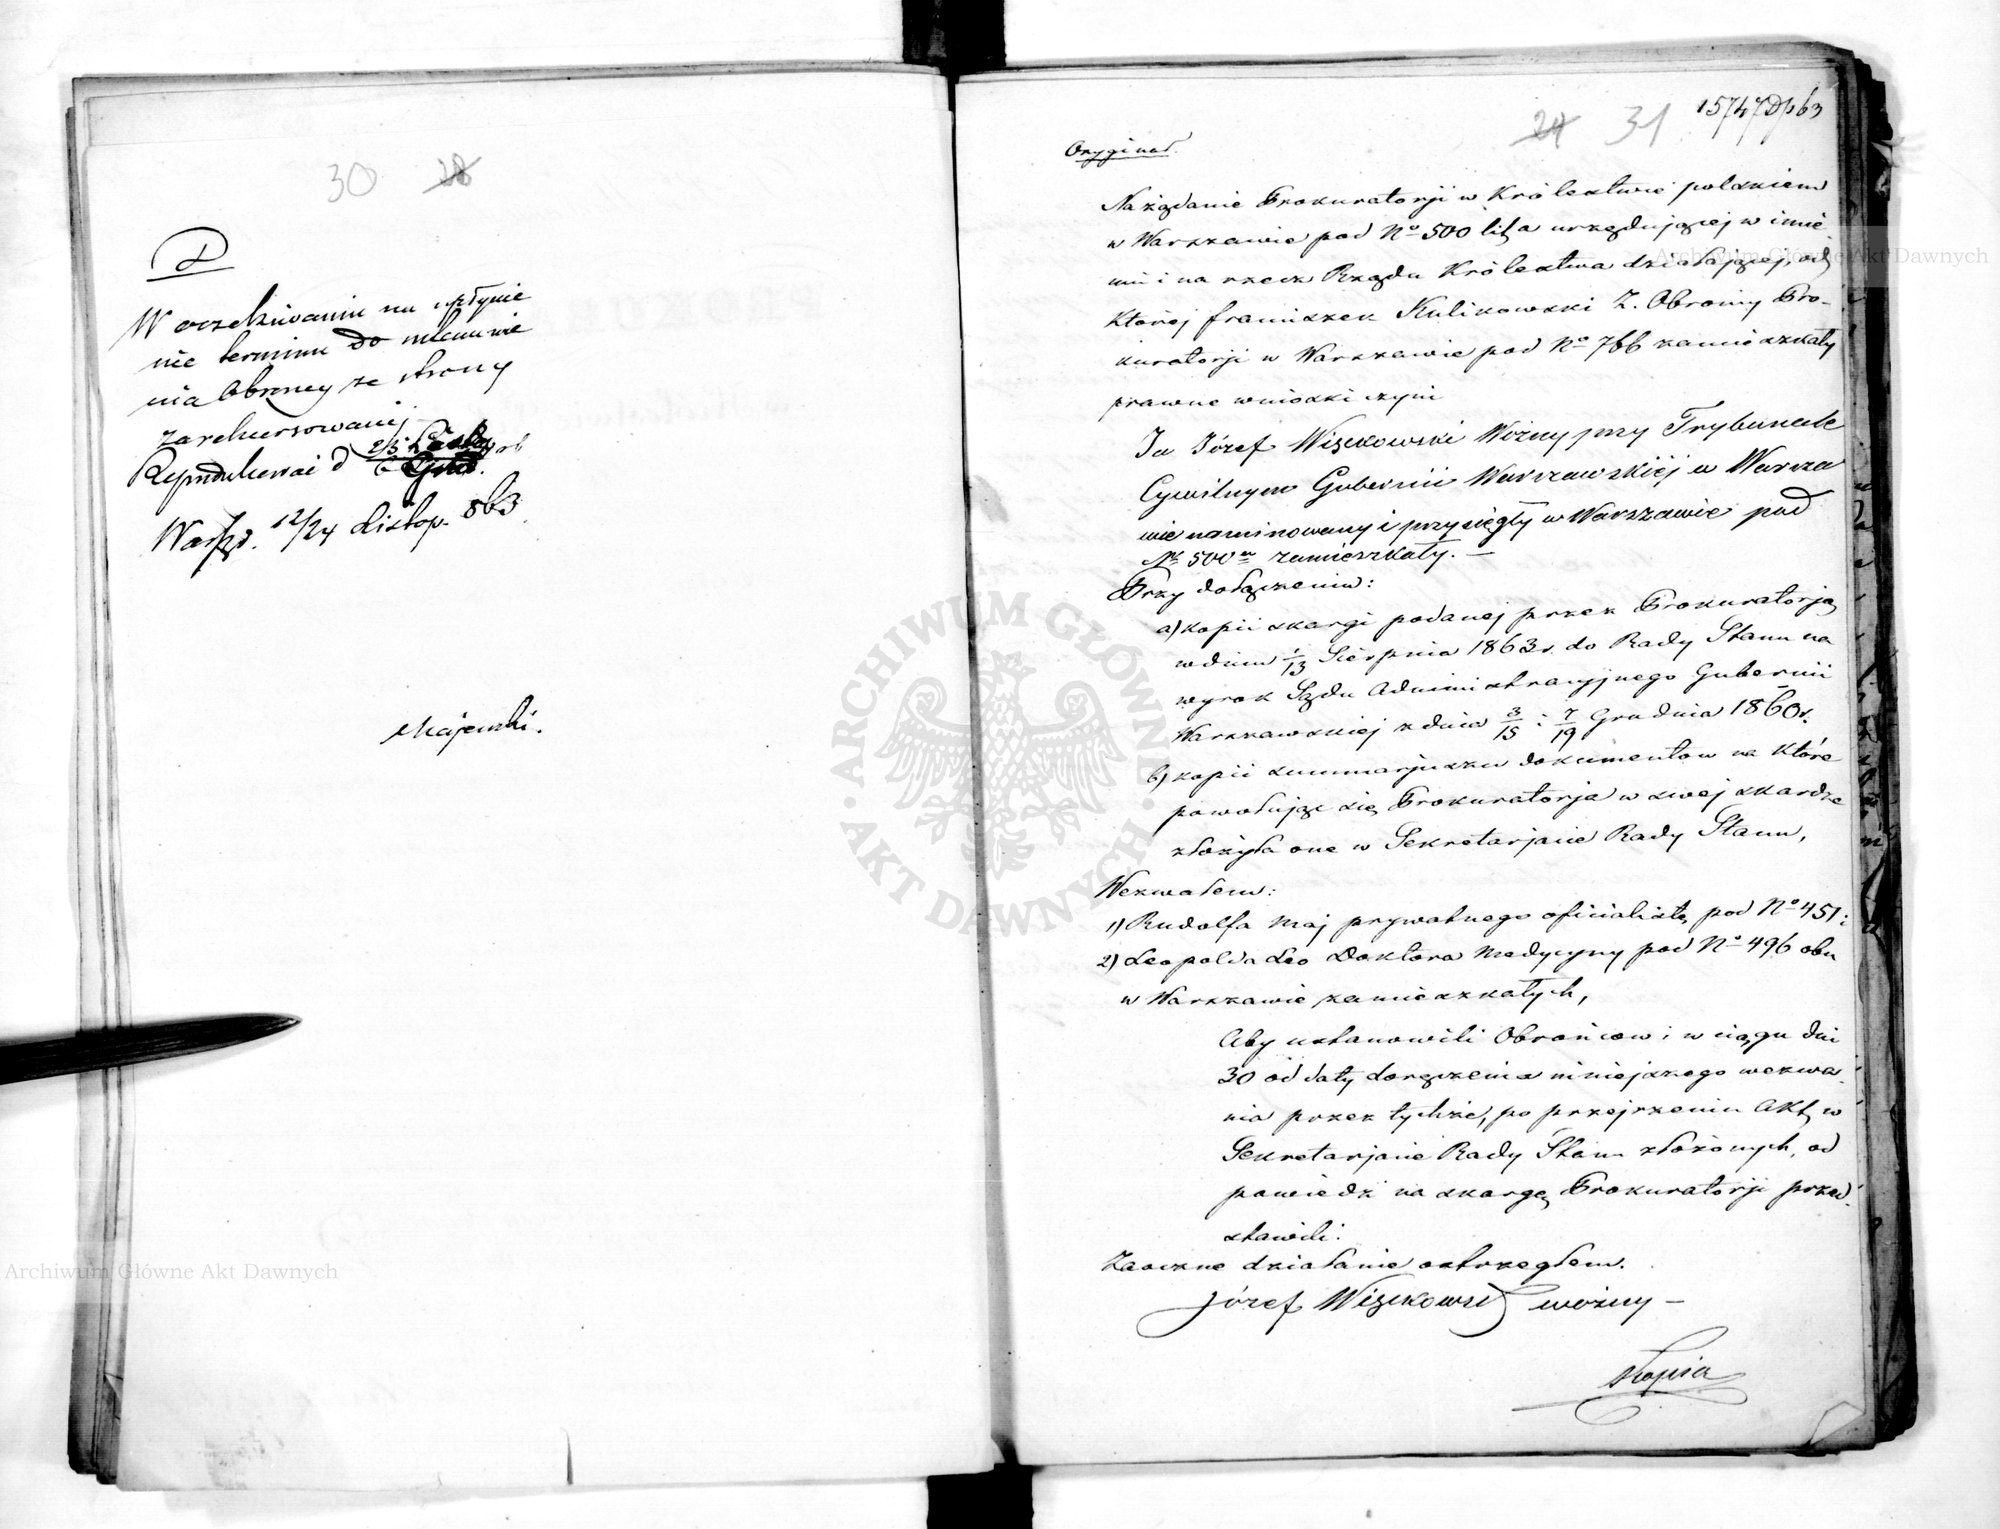 30 28
W oczekiwaniu na upłynie
nie terminu do mianowa
nia Obrońcy ze strony
zarekursowanej
Reprodukować d
Warsz. 12/24 Listop. 863
Majewski.
15747 Dp 63
24 31
Oryginał.
Na żądanie Prokuratorji w Królestwie polskiem
w Warszawie pod No 500 lit. a urzędującej w imie
niu i na rzecz Rządu Królestwa działającej, od
której franciszek Kulikowski Z. Obrońcy Pro-
kuratorji w Warszawie pod No 766 zamieszkały
prawne wnioski czyni
Ja Józef Więckowski Woźny przy Trybunale
Cywilnym Gubernii Warszawskiéj w Warsza
wie nominowany i przysięgły w Warszawie pod
Nr 500 zamieszkały. —
Przy dołączeniu:
a) kopii skargi podanej przez Prokuratorją
w dniu 1/13 Sierpnia 1863 r. do Rady Stanu na
wyrok Sądu Administracyjnego Gubernii
Warszawskiej z dnia 3/15 i 7/19 Grudnia 1860 r.
b) kopii summarjuszu dokumentow na które
powołując się Prokuratorja w swej skardze
złożyła one w Sekretarjacie Rady Stanu,
Wezwałem:
1) Rudolfa Maj prywatnego oficialistę pod No 451 i
2) Leopolda Leo Doktora Medycyny pod No 496 obu
w Warszawie zamieszkałych,
Aby ustanowili Obrońcow i w ciągu dni
30 od daty doręczenia niniejszego wezwa
nia przez tychże, po przejrzeniu Akt w
Sekretarjacie Rady Stanu złożonych, od
powiedź na skargę Prokuratorji przed
stawili.
Zaoczne działanie ostrzegłem.
Józef Więckowski woźny —
Kopia
ARCHIWUM GŁÓWNE
AKT DAWNYCH
Archiwum Główne Akt Dawnych
Archiwum Główne Akt Dawnych